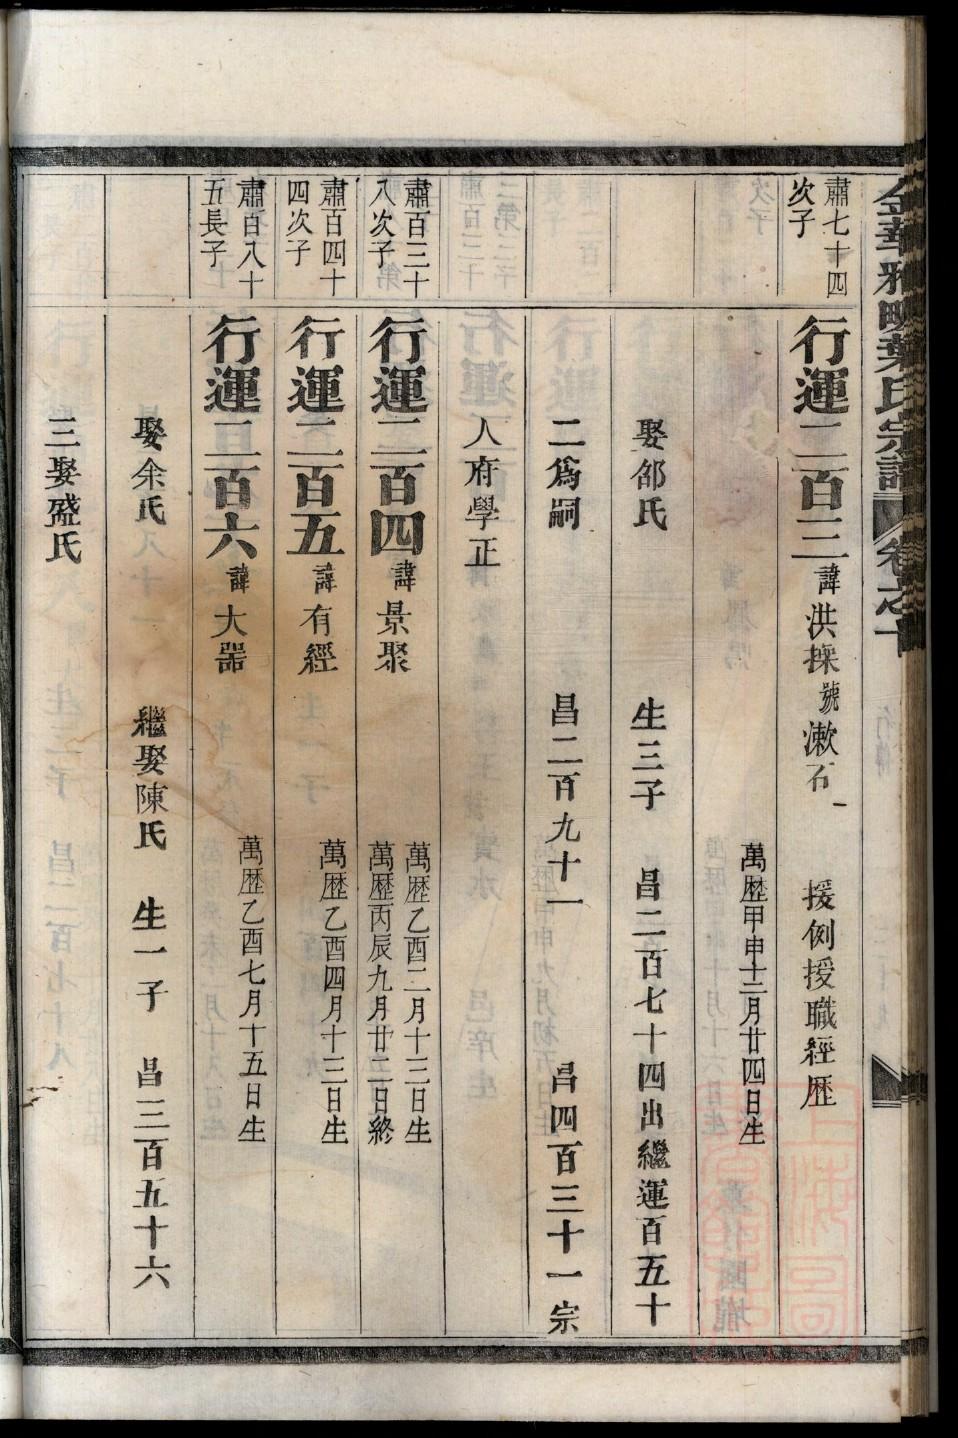 金華雅畈葉氏宗譜 卷之十
肅七十四
次子
行運二百三 諱洪採 號漱石 援例授職經歷
萬歷甲申十二月廿四日生
娶邰氏 生三子 昌二百七十四出繼運百五十
二爲嗣 昌二百九十一 昌四百三十一宗
人府學正
肅百三十
八次子
行運二百四 諱景聚
萬歷乙酉二月十三日生
萬歷丙辰九月廿五日終
肅百四十
四次子
行運二百五 諱有經
萬歷乙酉四月十三日生
肅百八十
五長子
行運二百六 諱大器
萬歷乙酉七月十五日生
娶余氏 繼娶陳氏 生一子 昌三百五十六
三娶盛氏